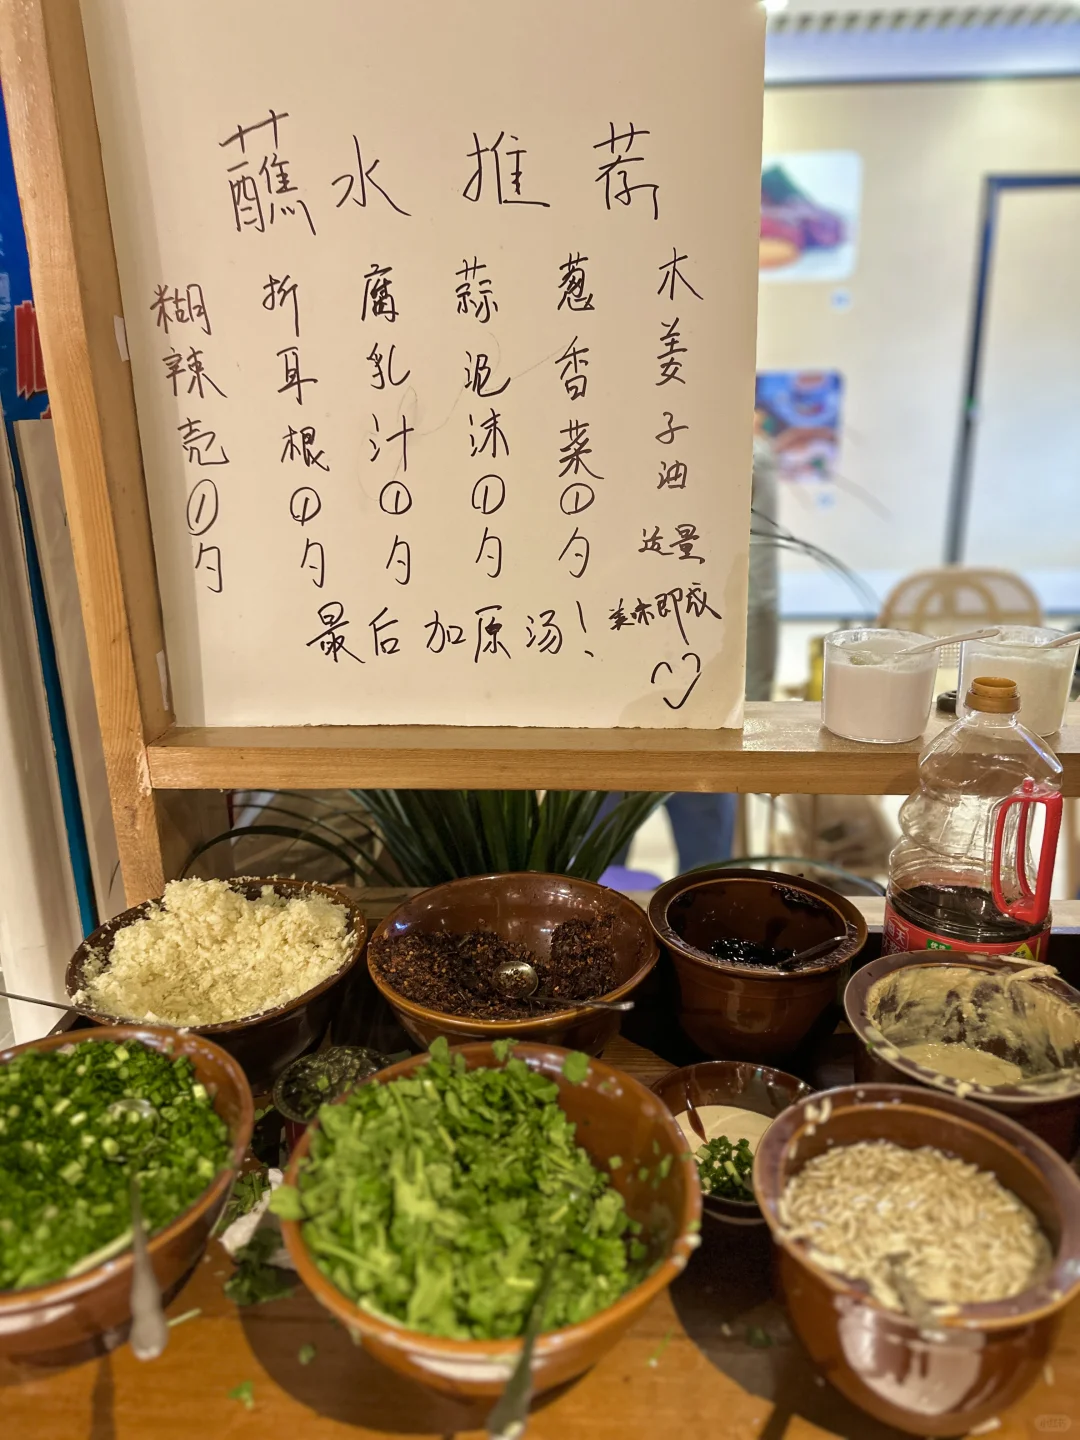 蘸水推荐
糊辣壳①勺
折耳根①勺
腐乳汁①勺
蒜泥沫①勺
葱香菜①勺
木姜子油适量
美味即成
最后加原汤!